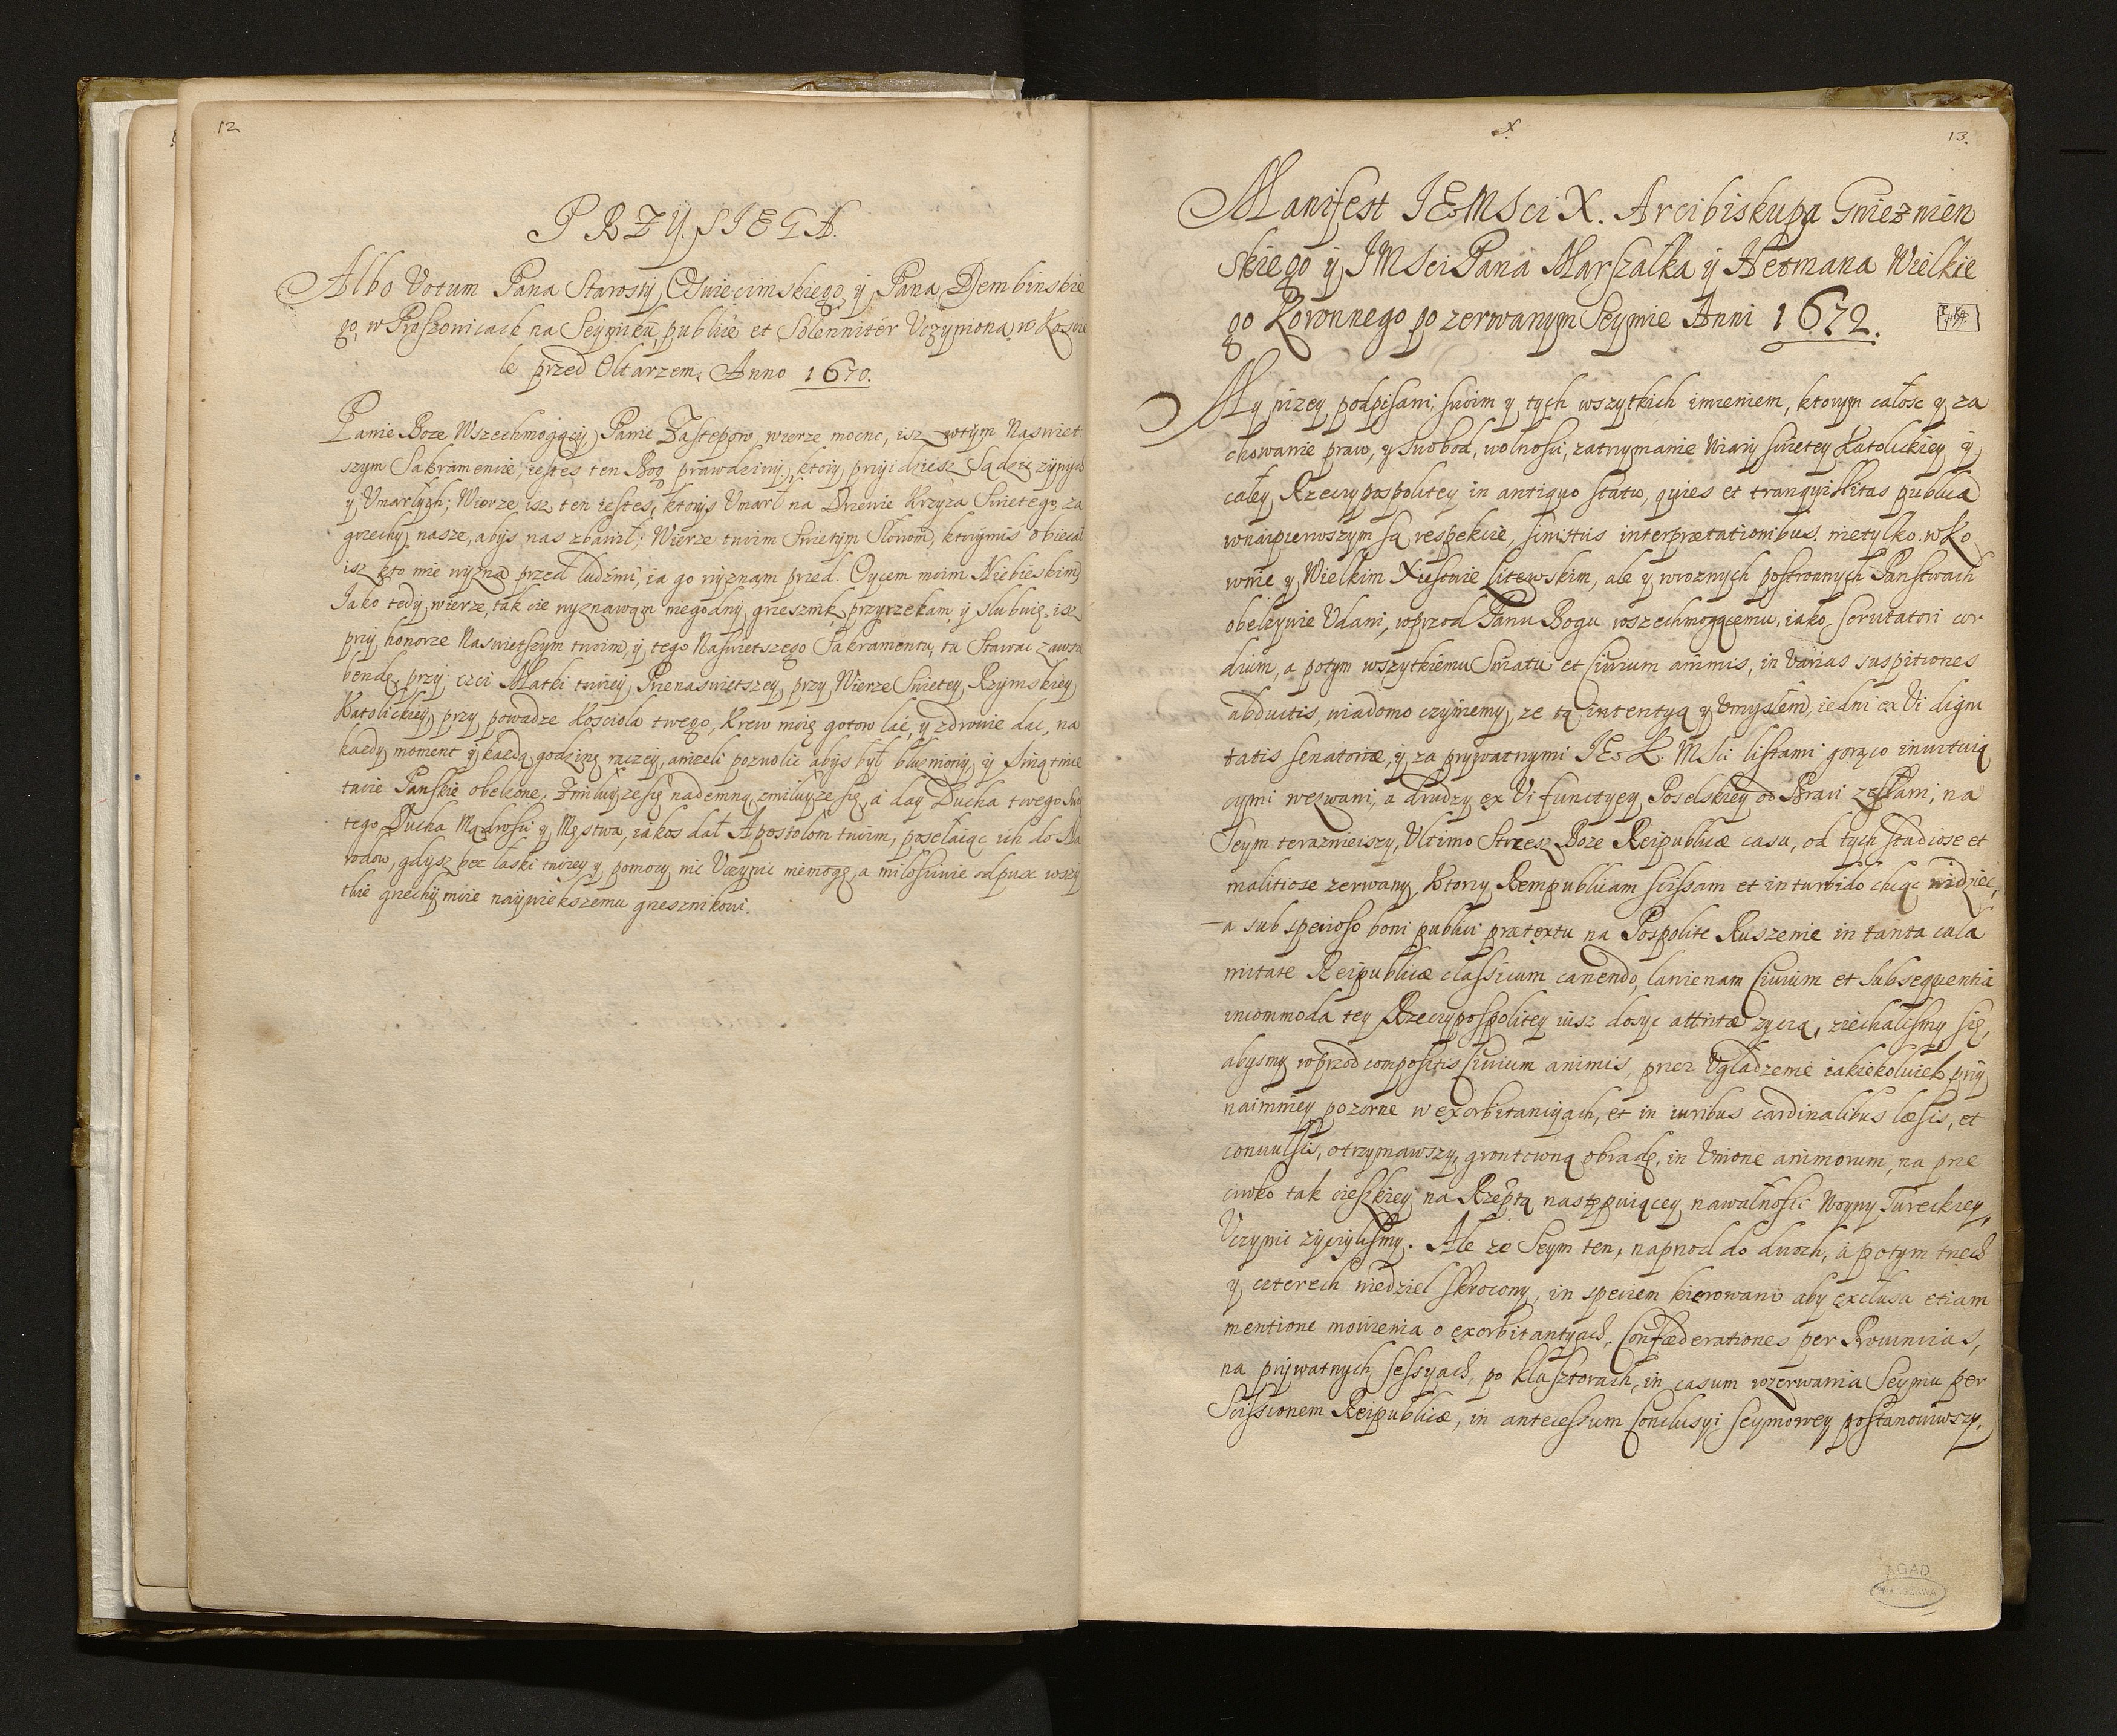 12
PRZYSIEGA.
Albo Votum Pana Starosty Oswięcimskiego, y Pana Dembinskie
go, w Proszowicach na Seymiku, publicè et Solenniter Uczyniona, w Kosciе
le przed Oltarzem. Anno 1670.
Panie Boze Wszechmogący, Panie Zastepow, wierze mocno, isz wtym Naswiet.
szym Sakramencie, iestes ten Bog prawdziwy, ktory przyidziesz Sądzic zywych
y Umarłych; Wierze, isz ten iestes, ktorys Umarł na Drzewie Krzyza Swietego, za
grzechy nasze, abys nas zbawił; Wierze twoim Swietym Słowom, ktorymis obiecał
isz kto mie wyzna przed ludzmi, ia go wyznam przed Oycem moim Niebieskim,
Iako tedy wierze, tak cie wyznawam niegodny grzesznik, przyrzekam, y slubuię, isz
przy honorze Naswietszym twoim, y tego Naswietszego Sakramentu, tu Stawac zawsze
bende, przy czci Matki twoiey Przenaswietszey, przy Wierze Swietey Rzymskiey
Katolickiey, przy powadze Kosciola twego, Krew moię gotow lać, y zdrowie dac, na
kazdy moment y kazdą godzinę raczey, anizeli pozwolic abys był blusniony, y Imię
twoie Panskie obelzone, Zmiłuyzesię nademną, zmiłuyzesię, a day Ducha twego Swię
tego, Ducha Mądrosci y Męstwa, iakos dał Apostolom twoim, posełaiąc ich do Na
rodow, gdysz bez laski twoiey y pomocy nic Uczynic niemogę, a miłosciwie odpusc wszy
tkie grzechy moie naywiekszemu grzesznikowi.
X.
13.
Manifest IEMSci X. Arcibiskupa Gnieznien
skiego y IMSci Pana Marszałka y Hetmana Wielkie
go Koronnego po zerwanym Seymie Anni 1672.
My nizey podpisani, swoim y tych wszytkich imieniem, ktorym całosc y za
chowanie praw, y swobod, wolnosci, zatrzymanie Wiary swietey Katolickiey y
całey Rzeczypospolitey in antiquo statu, quies et tranquillitas publica
wnaypierwszym są respekcie, sinistris interpretationibus nietylko wKo
ronie y Wielkim Xiestwie Litewskim, ale y wroznych postronnych Panstwach
obelzywie Udani, wprzod Panu Bogu wszechmogącemu, iako scrutatori cor
dium, a potym wszytkiemu Swiatu et Civium animis, in varias suspitiones
abductis, wiadomo czyniemy, ze tą intentyą y Umysłem, iedni ex Vi digni
tatis senatoriæ, y za prywatnymi IE K. MSci listami gorąco inwituią
cymi wezwani, a drudzy ex Vi functyey Poselskiey od Braci zesłani, na
Seym teraznieiszy, Ultimo Strzesz Boze Reipublicæ casu, od tych studiose et
malitiose zerwany, ktorzy Rempublicam scissam et in turbido chcąc widziec,
a sub specioso boni publici prætextu na Pospolite Ruszenie in tanta cala
mitate Reipublicæ classicum canendo, lanienam Civium et subsequentia
incommoda tey Rzeczypospolitey iusz dosyc attritæ zyczą, ziechalismy się,
abysmy wprzod compositis Civium animis, przez Ugladzenie iakiekolwiek przy
naimniey pozorne w exorbitancyach, et in iuribus cardinalibus læsis, et
convulsis, otrzymawszy grontowną obradę, in Unione animorum, na prze
ciwko tak cieszkiey na Rzeptą następuiącey nawalnosci Woyny Tureckiey,
Uczynic zyczylismy. Ale ze Seym ten, naprzod do dwoch, à potym trzech
y czterech niedziel skrocony, in speciem kierowano aby exclusa etiam
mentione mowienia o exorbitantyach, Confæderationes per Provincias,
na prywatnych sessyach, po klasztorach, in casum rozerwania Seymu per
Scissionem Reipublicæ, in antecessum Conclusyi Seymowey postanowiwszy,
AGAD
WARSZAWA